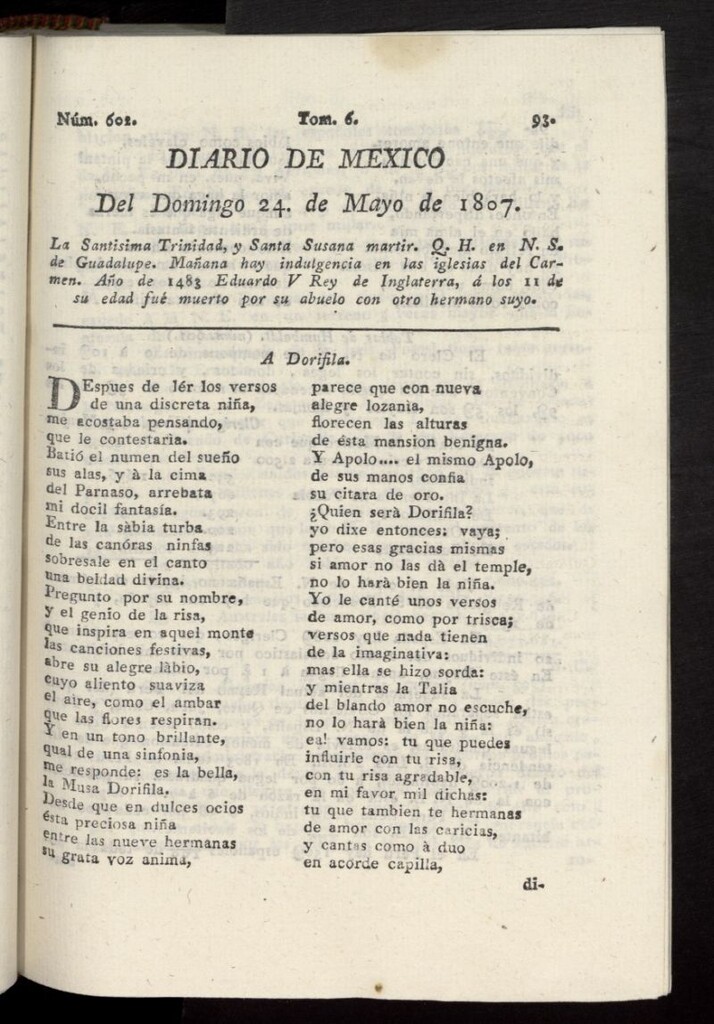 Núm. 602. Tom. 6. 93.
DIARIO DE MEXICO
Del Domingo 24. de Mayo de 1807.
La Santisima Trinidad, y Santa Susana martir. Q. H. en N. S.
de Guadalupe. Mañana hay indulgencia en las iglesias del Car-
men. Año de 1483 Eduardo V Rey de Inglaterra, á los 11 de
su edad fué muerto por su abuelo con otro hermano suyo.
A Dorifila.
DEspues de lér los versos
de una discreta niña,
me acostaba pensando,
que le contestaria.
Batió el numen del sueño
sus alas, y à la cima
del Parnaso, arrebata
mi docil fantasía.
Entre la sàbia turba
de las canóras ninfas
sobresale en el canto
una beldad divina.
Pregunto por su nombre,
y el genio de la risa,
que inspira en aquel monte
las canciones festivas,
abre su alegre làbio,
cuyo aliento suaviza
el aire, como el ambar
que las flores respiran.
Y en un tono brillante,
qual de una sinfonia,
me responde: es la bella,
la Musa Dorifila.
Desde que en dulces ocios
ésta preciosa niña
entre las nueve hermanas
su grata voz anima,
parece que con nueva
alegre lozanìa,
florecen las alturas
de ésta mansion benigna.
Y Apolo.... el mismo Apolo,
de sus manos confia
su citara de oro.
¿Quien serà Dorifila?
yo dixe entonces: vaya;
pero esas gracias mismas
si amor no las dà el temple,
no lo harà bien la niña.
Yo le canté unos versos
de amor, como por trisca;
versos que nada tienen
de la imaginativa:
mas ella se hizo sorda:
y mientras la Talia
del blando amor no escuche,
no lo harà bien la niña:
ea! vamos: tu que puedes
influirle con tu risa,
con tu risa agradable,
en mi favor mil dichas:
tu que tambien te hermanas
de amor con las caricias,
y cantas como à duo
en acorde capilla,
di-